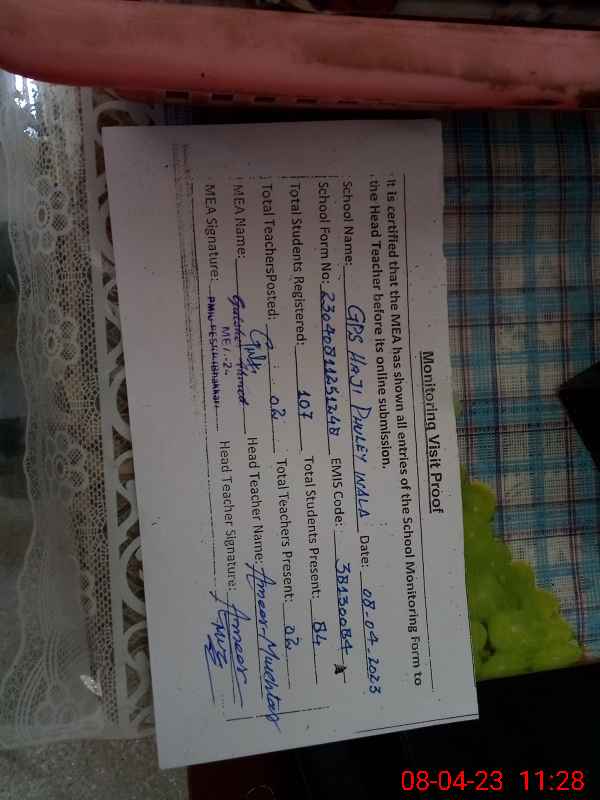 Monitoring Visit Proof
It is certified that the MEA has shown all entries of the School Monitoring Form to
the Head Teacher before its online submission.
School Name: GPS HAJI PHULEY WALA Date: 08-04-2023
School Form No: EMIS Code: 38130084
Total Students Registered: 107 Total Students Present: 84
Total TeachersPosted: 02 Total Teachers Present: 02
MEA Name: Head Teacher Name: Ameer Mukhtar
MEA Signature: Head Teacher Signature: Ameer
08-04-23 11:28